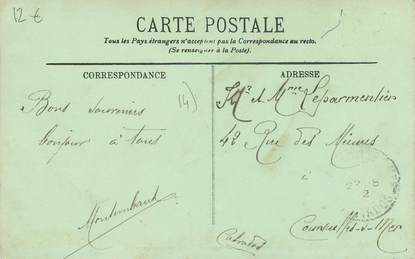 12 €
CARTE POSTALE
Tous les Pays étrangers n'acceptent pas la Correspondance au recto.
(Se renseigner à la Poste).
CORRESPONDANCE
ADRESSE
Bons Souvenirs
bonjour à tous
14)
Mr et Mme Leparmentier
42 Rue des
à
Courseulles-s-Mer
Calvados